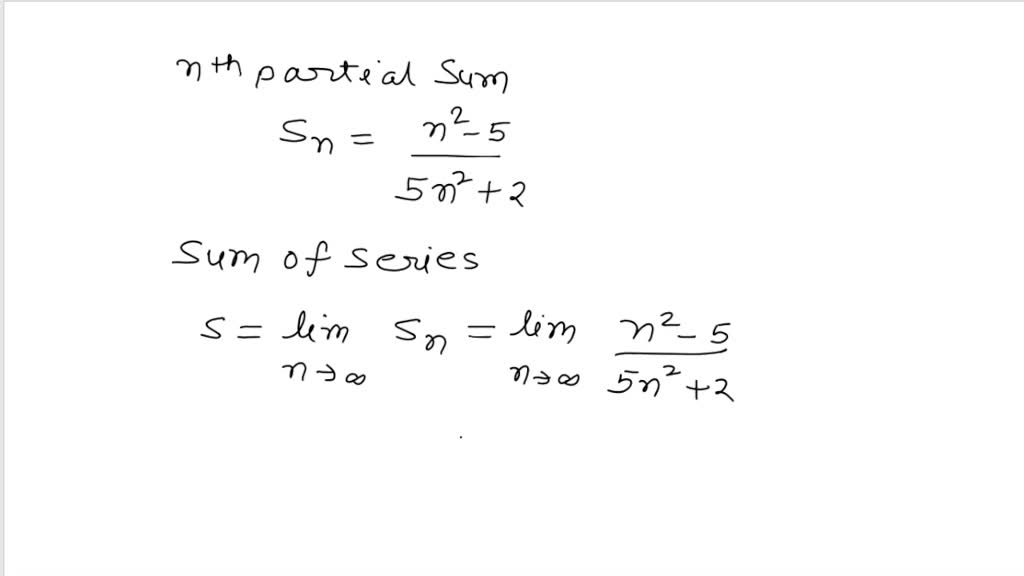 nth partial Sum
Sn = n²-5 / 5n²+2
Sum of series
S = lim n→∞ Sn = lim n→∞ n²-5 / 5n²+2